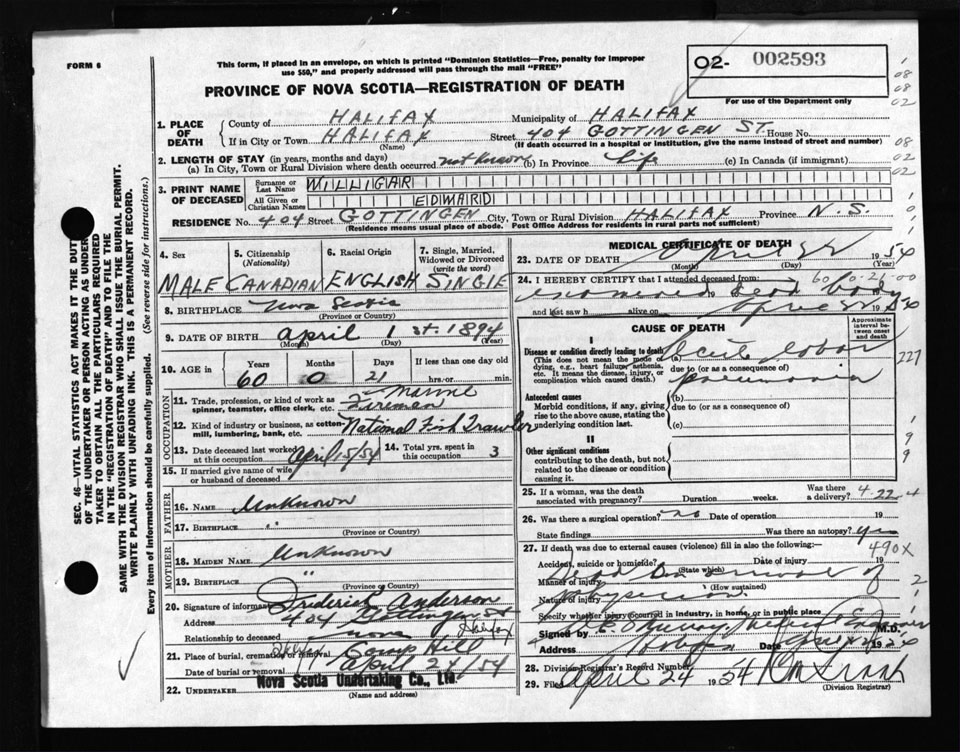 FORM 6
This form, if placed in an envelope, on which is printed "Dominion Statistics—Free, penalty for improper
use $50," and properly addressed will pass through the mail "FREE"
O2- 002593
For use of the Department only
PROVINCE OF NOVA SCOTIA—REGISTRATION OF DEATH
1. PLACE OF DEATH County of HALIFAX Municipality of HALIFAX
If in City or Town HALIFAX Street 404 GOTTINGEN ST. House No.
(Name) (If death occurred in a hospital or institution, give the name instead of street and number)
2. LENGTH OF STAY (in years, months and days)
(a) In City, Town or Rural Division where death occurred not known (b) In Province Life (c) In Canada (if immigrant)
3. PRINT NAME OF DECEASED Surname or Last Name MILLIGAR
All Given or Christian Names EDWARD
RESIDENCE No. 404 Street GOTTINGEN City, Town or Rural Division HALIFAX Province N.S.
(Residence means usual place of abode. Post Office Address for residents in rural parts not sufficient)
4. Sex MALE
5. Citizenship (Nationality) CANADIAN
6. Racial Origin ENGLISH
7. Single, Married, Widowed or Divorced (write the word) SINGLE
8. BIRTHPLACE Nova Scotia
(Province or Country)
9. DATE OF BIRTH April 1st. 1894
(Month) (Day) (Year)
10. AGE in Years 60 Months 0 Days 21 If less than one day old hrs. or min.
OCCUPATION
11. Trade, profession, or kind of work as spinner, teamster, office clerk, etc. Marine Fireman
12. Kind of industry or business, as cotton-mill, lumbering, bank, etc. National Fish Trawler
13. Date deceased last worked at this occupation April 15/54
14. Total yrs. spent in this occupation 3
15. If married give name of wife or husband of deceased
FATHER
16. NAME Unknown
17. BIRTHPLACE "
(Province or Country)
MOTHER
18. MAIDEN NAME Unknown
19. BIRTHPLACE "
(Province or Country)
20. Signature of informant Frederick Anderson
Address 404 Gottingen St Halifax
Relationship to deceased none
21. Place of burial, cremation or removal Camp Hill
Date of burial or removal April 24/54
22. UNDERTAKER Nova Scotia Undertaking Co., Ltd.
(Name and address)
MEDICAL CERTIFICATE OF DEATH
23. DATE OF DEATH April 22 1954
(Month) (Day) (Year)
24. I HEREBY CERTIFY that I attended deceased from: 60-0-21-00
examined dead body
and last saw h alive on April 22
CAUSE OF DEATH
Approximate interval between onset and death
I
Disease or condition directly leading to death (a) Acute lobar
(This does not mean the mode of dying, e.g., heart failure, asthenia, etc. It means the disease, injury, or complication which caused death.)
due to (or as a consequence of) pneumonia
Antecedent causes (b)
Morbid conditions, if any, giving rise to the above cause, stating the underlying condition last.
due to (or as a consequence of)
(c)
II
Other significant conditions
contributing to the death, but not related to the disease or condition causing it.
25. If a woman, was the death associated with pregnancy? Duration weeks. Was there a delivery? 4-22-4
26. Was there a surgical operation? no Date of operation 19
State findings Was there an autopsy? yes
27. If death was due to external causes (violence) fill in also the following:— 490X
Accident, suicide or homicide? Date of injury 19
(State which)
Manner of injury
(How sustained)
Nature of injury
Specify whether injury occurred in industry, in home, or in public place
Signed by M.D.
Address Date
28. Division Registrar's Record Number
29. Filed April 24 1954
(Division Registrar)
SEC. 46—VITAL STATISTICS ACT MAKES IT THE DUTY
OF THE UNDERTAKER OR PERSON ACTING AS UNDERTAKER
TO OBTAIN ALL THE PARTICULARS REQUIRED
IN THE "REGISTRATION OF DEATH" AND TO FILE THE
SAME WITH THE DIVISION REGISTRAR WHO SHALL ISSUE THE BURIAL PERMIT.
WRITE PLAINLY WITH UNFADING INK. THIS IS A PERMANENT RECORD.
Every item of information should be carefully supplied. (See reverse side for instructions.)